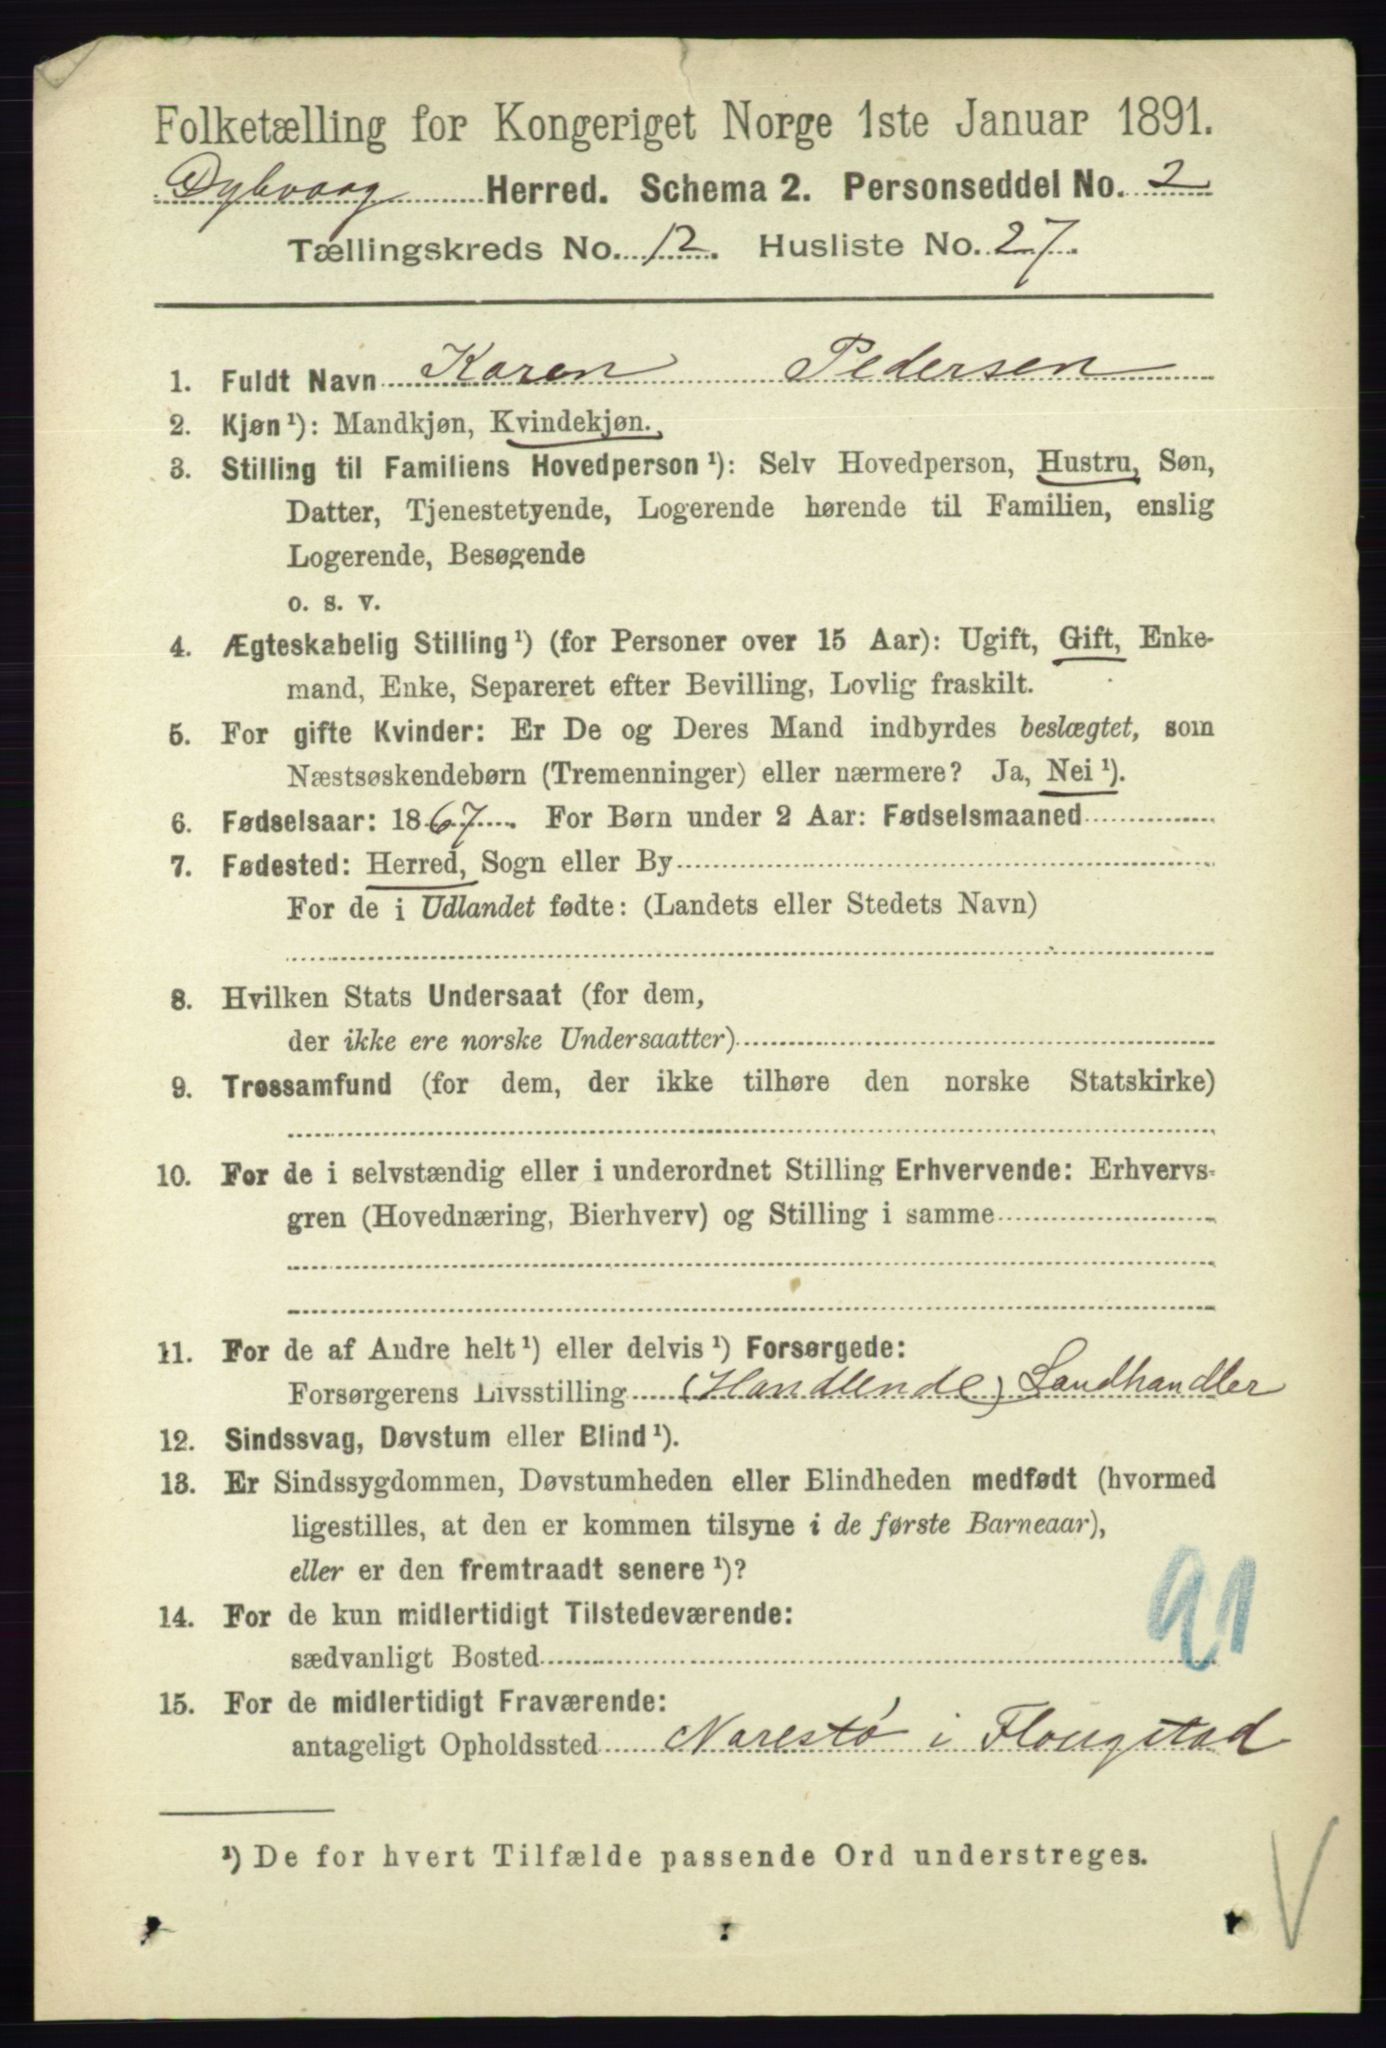 Folketælling for Kongeriget Norge 1ste Januar 1891.
Dybvaag Herred. Schema 2. Personseddel No. 2
Tællingskreds No. 12. Husliste No. 27.
1. Fuldt Navn Karen Pedersen
2. Kjøn¹): Mandkjøn, Kvindekjøn.
3. Stilling til Familiens Hovedperson¹): Selv Hovedperson, Hustru, Søn,
Datter, Tjenestetyende, Logerende hørende til Familien, enslig
Logerende, Besøgende
o. s. v.
4. Ægteskabelig Stilling¹) (for Personer over 15 Aar): Ugift, Gift, Enke-
mand, Enke, Separeret efter Bevilling, Lovlig fraskilt.
5. For gifte Kvinder: Er De og Deres Mand indbyrdes beslægtet, som
Næstsøskendebørn (Tremenninger) eller nærmere? Ja, Nei¹).
6. Fødselsaar: 1867. For Børn under 2 Aar: Fødselsmaaned
7. Fødested: Herred, Sogn eller By
For de i Udlandet fødte: (Landets eller Stedets Navn)
8. Hvilken Stats Undersaat (for dem,
der ikke ere norske Undersaatter)
9. Trossamfund (for dem, der ikke tilhøre den norske Statskirke)
10. For de i selvstændig eller i underordnet Stilling Erhvervende: Erhvervs-
gren (Hovednæring, Bierhverv) og Stilling i samme
11. For de af Andre helt¹) eller delvis¹) Forsørgede:
Forsørgerens Livsstilling (Handlende) Landhandler
12. Sindssvag, Døvstum eller Blind¹).
13. Er Sindssygdommen, Døvstumheden eller Blindheden medfødt (hvormed
ligestilles, at den er kommen tilsyne i de første Barneaar),
eller er den fremtraadt senere¹)?
14. For de kun midlertidigt Tilstedeværende:
sædvanligt Bosted
91
15. For de midlertidigt Fraværende:
antageligt Opholdssted Narestø i Flougstad
¹) De for hvert Tilfælde passende Ord understreges.
V